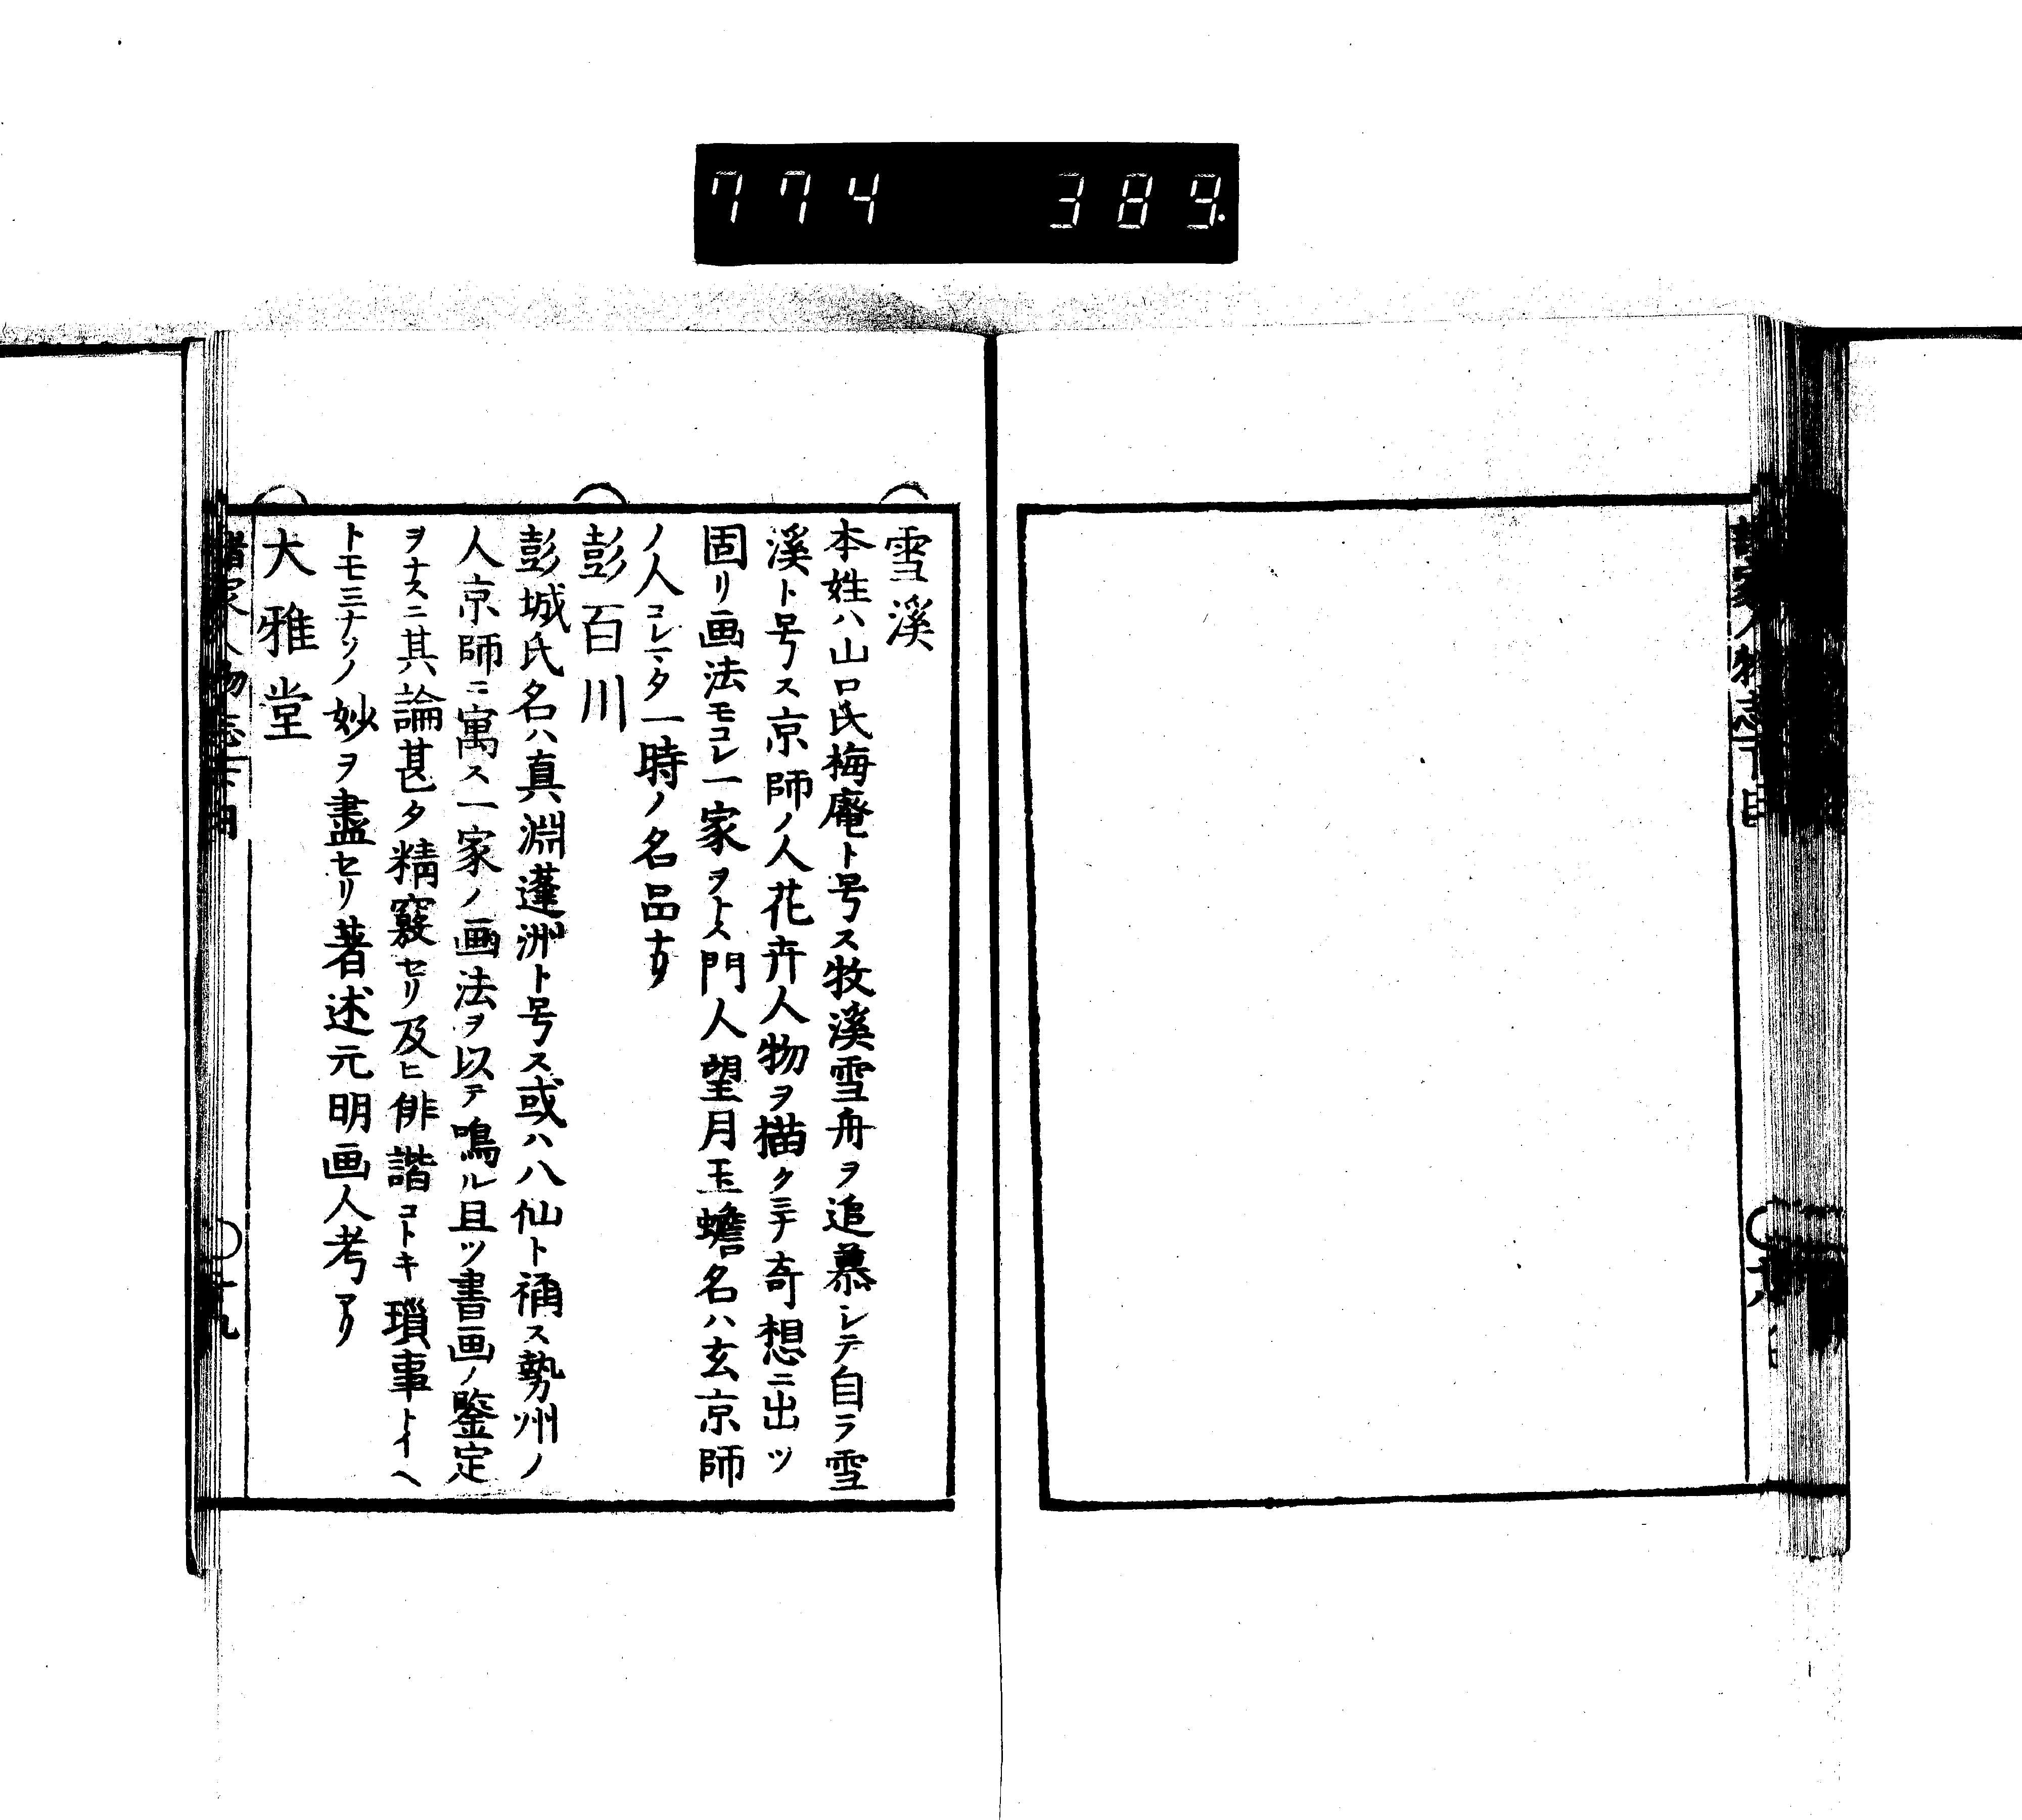 774 389.
雪溪
本姓ハ山口氏梅庵ト号ス牧溪雪舟ヲ追慕シテ自ラ雪
溪ト号ス京師ノ人花卉人物ヲ描クミナ奇想ニ出ツ
固リ画法モコレ一家ヲナス門人望月玉蟾名ハ玄京師
ノ人コレマタ一時ノ名品ナリ
彭百川
彭城氏名ハ真淵蓬洲ト号ス或ハ八仙ト稱ス勢州ノ
人京師ニ寓ス一家ノ画法ヲ以テ鳴ル且ツ書画ノ鑒定
ヲナスニ其論甚タ精竅セリ及ヒ俳諧コトキ瑣事トイヘ
トモミナソノ妙ヲ盡セリ著述元明画人考アリ
大雅堂